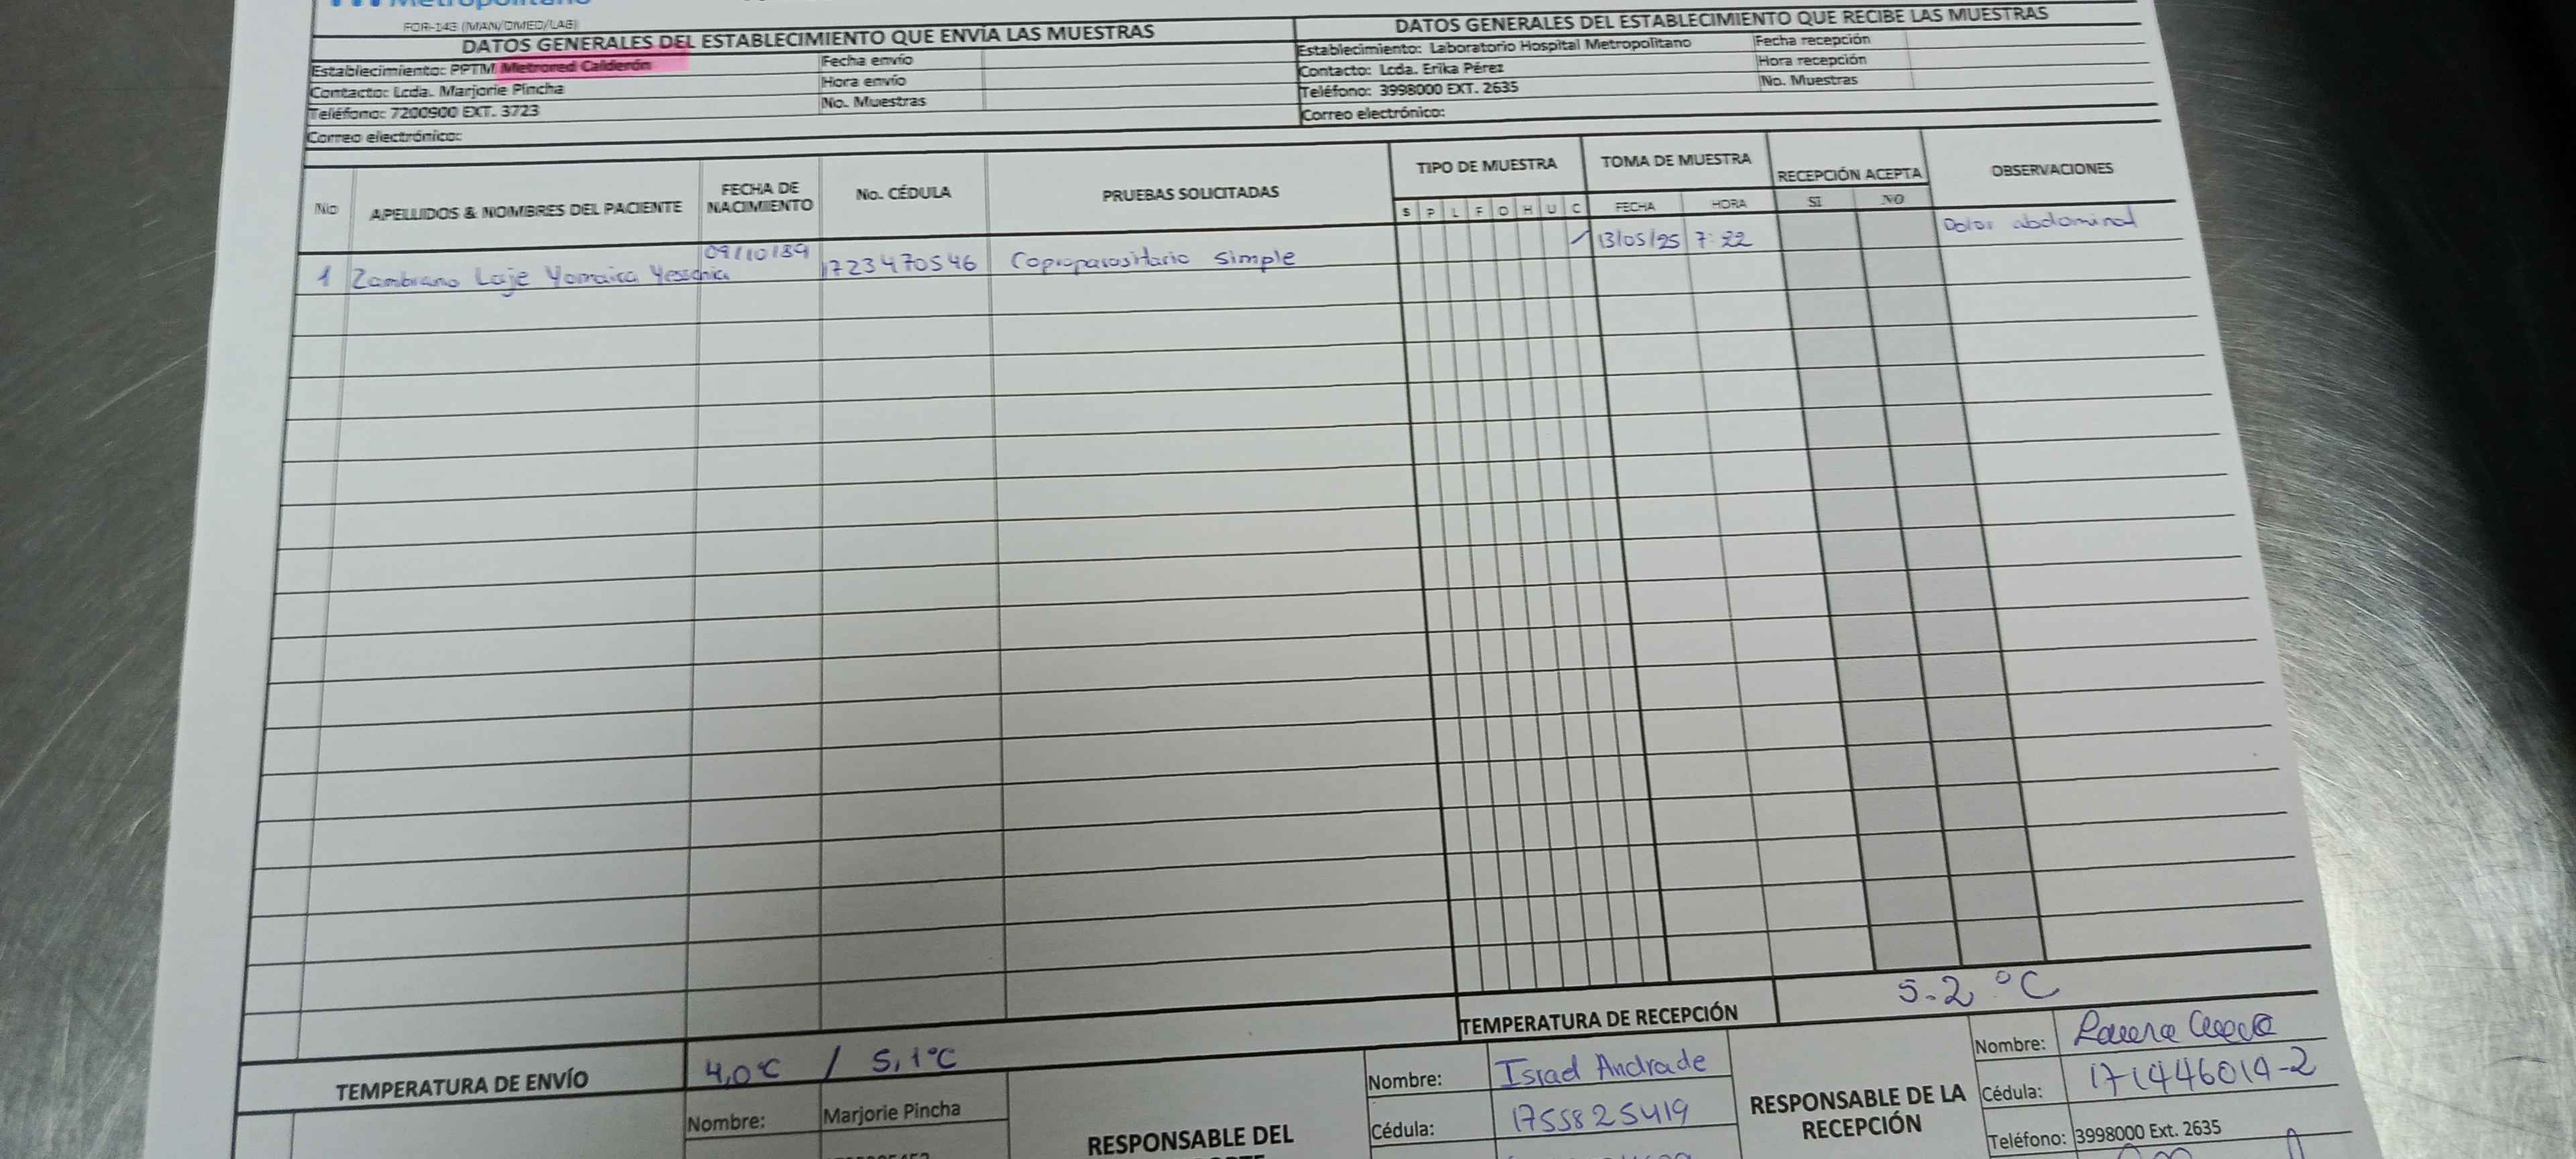 Metropolitano
FOR-143 (MAN/DMED/LAB)
DATOS GENERALES DEL ESTABLECIMIENTO QUE ENVÍA LAS MUESTRAS
Establecimiento: PPTM Metrored Calderón
Fecha envío
Contacto: Lcda. Marjorie Pincha
Hora envío
Teléfono: 7200900 EXT. 3723
No. Muestras
Correo electrónico:
DATOS GENERALES DEL ESTABLECIMIENTO QUE RECIBE LAS MUESTRAS
Establecimiento: Laboratorio Hospital Metropolitano
Fecha recepción
Contacto: Lcda. Erika Pérez
Hora recepción
Teléfono: 3998000 EXT. 2635
No. Muestras
Correo electrónico:
No
APELLIDOS & NOMBRES DEL PACIENTE
FECHA DE
NACIMIENTO
No. CÉDULA
PRUEBAS SOLICITADAS
TIPO DE MUESTRA
S P L F O H U C
TOMA DE MUESTRA
FECHA HORA
RECEPCIÓN ACEPTA
SI NO
OBSERVACIONES
1 Zambrano Loje Yomaira 09/10/89 1723470546 Coproparasitario simple / 13/05/25 7:22 Dolor abdominal
TEMPERATURA DE RECEPCIÓN 5.2 °C
TEMPERATURA DE ENVÍO 4,0°C / 5,1°C
Nombre: Marjorie Pincha
RESPONSABLE DEL
Nombre: Israel Andrade
Cédula: 1755825419
RESPONSABLE DE LA
RECEPCIÓN
Nombre:
Cédula: 171446014-2
Teléfono: 3998000 Ext. 2635